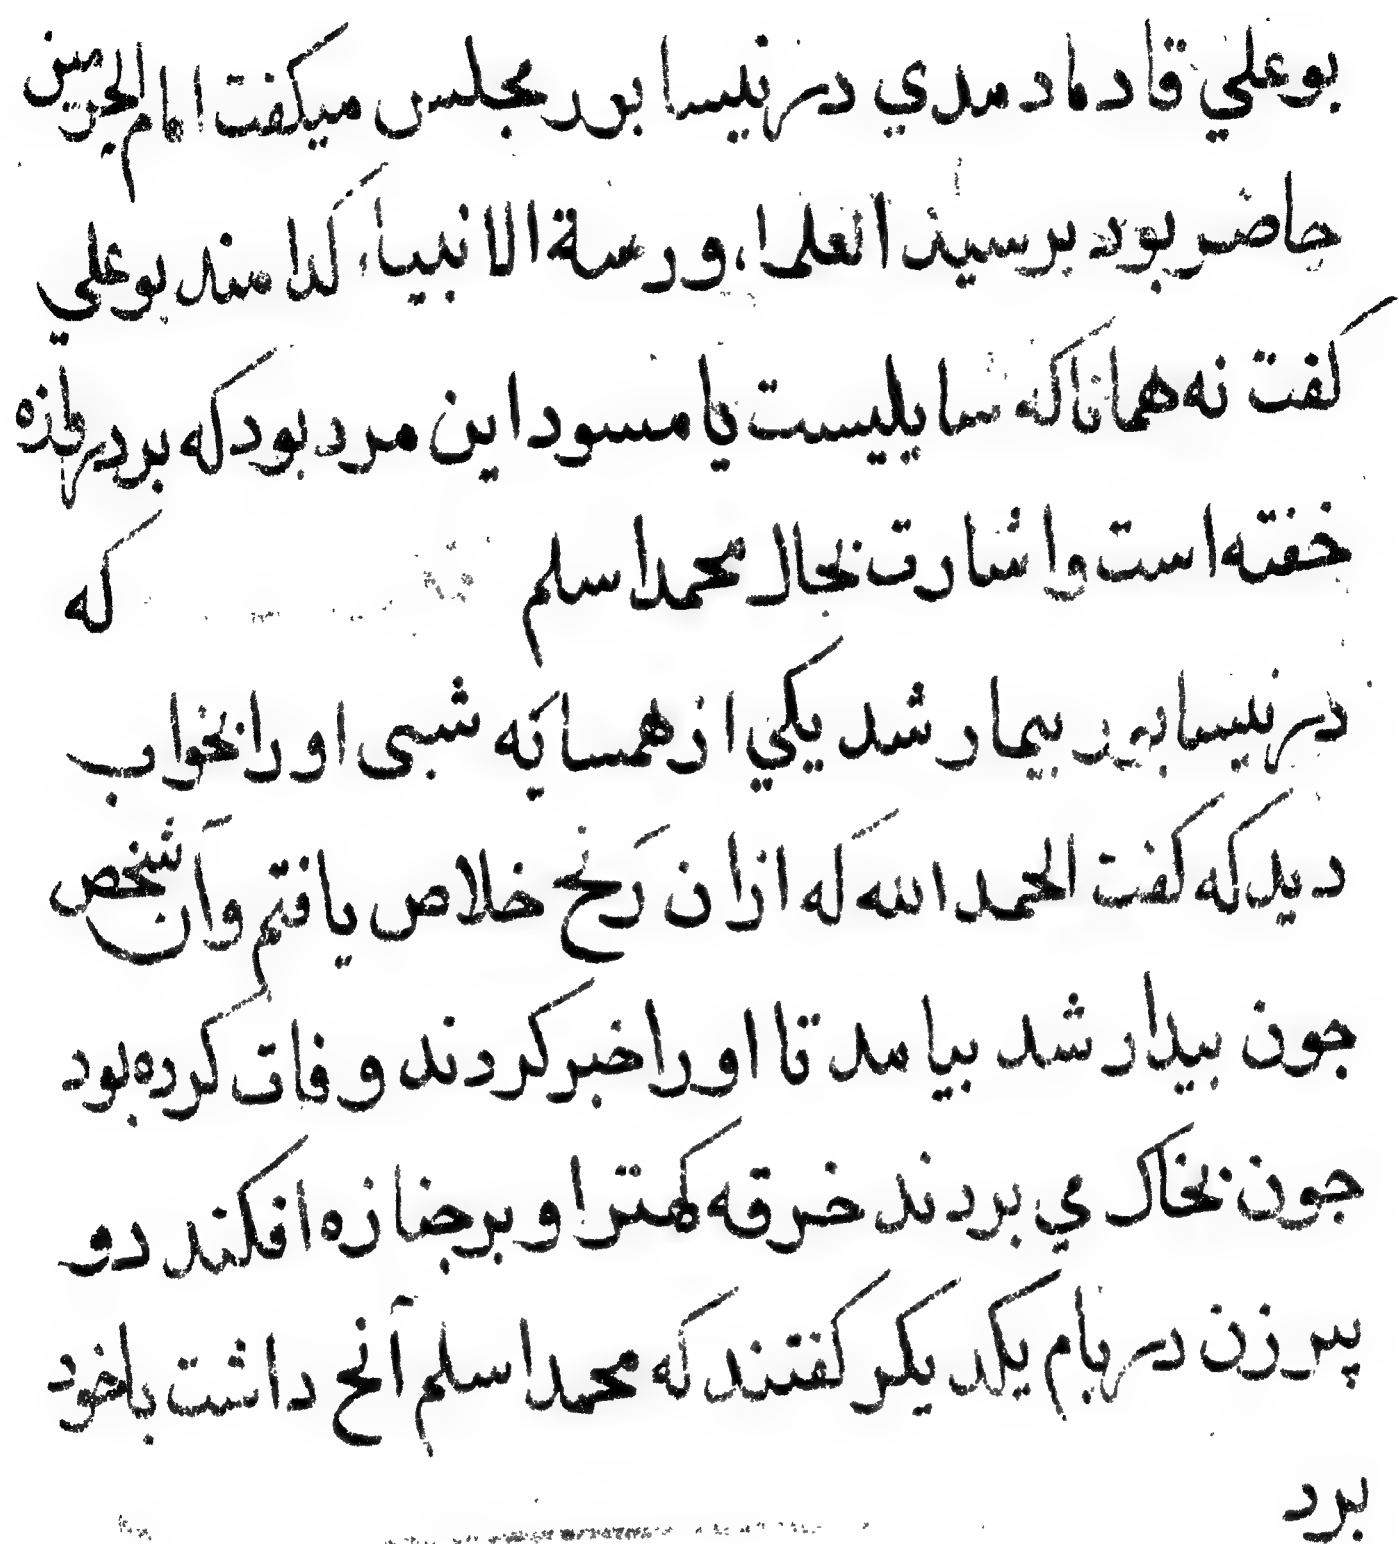 بوعلي فادمادمدي در نيسابور مجلس ميكفت امام الحرمين
حاضر بود برسيد العلماء ورسة الانبياء كدامند بوعلي
كفت نه همانا كه سايليست يا مسود اين مرد بود كه بر در نهاذه
خفته است واشارت بخاك محمد اسلم كه
در نيسابور بيمار شد يكي از همسايه شبى او را بخواب
ديد كه كفت الحمد الله كه ازان رنج خلاص يافتم وآن شخص
جون بيدار شد بيامد تا او را خبر كردند وفات كرده بود
جون بخاك مي بردند خرقه كهتر او بر جنازه افكند دو
پير زن در بام يكديكر كفتند كه محمد اسلم آنح داشت با خود
برد